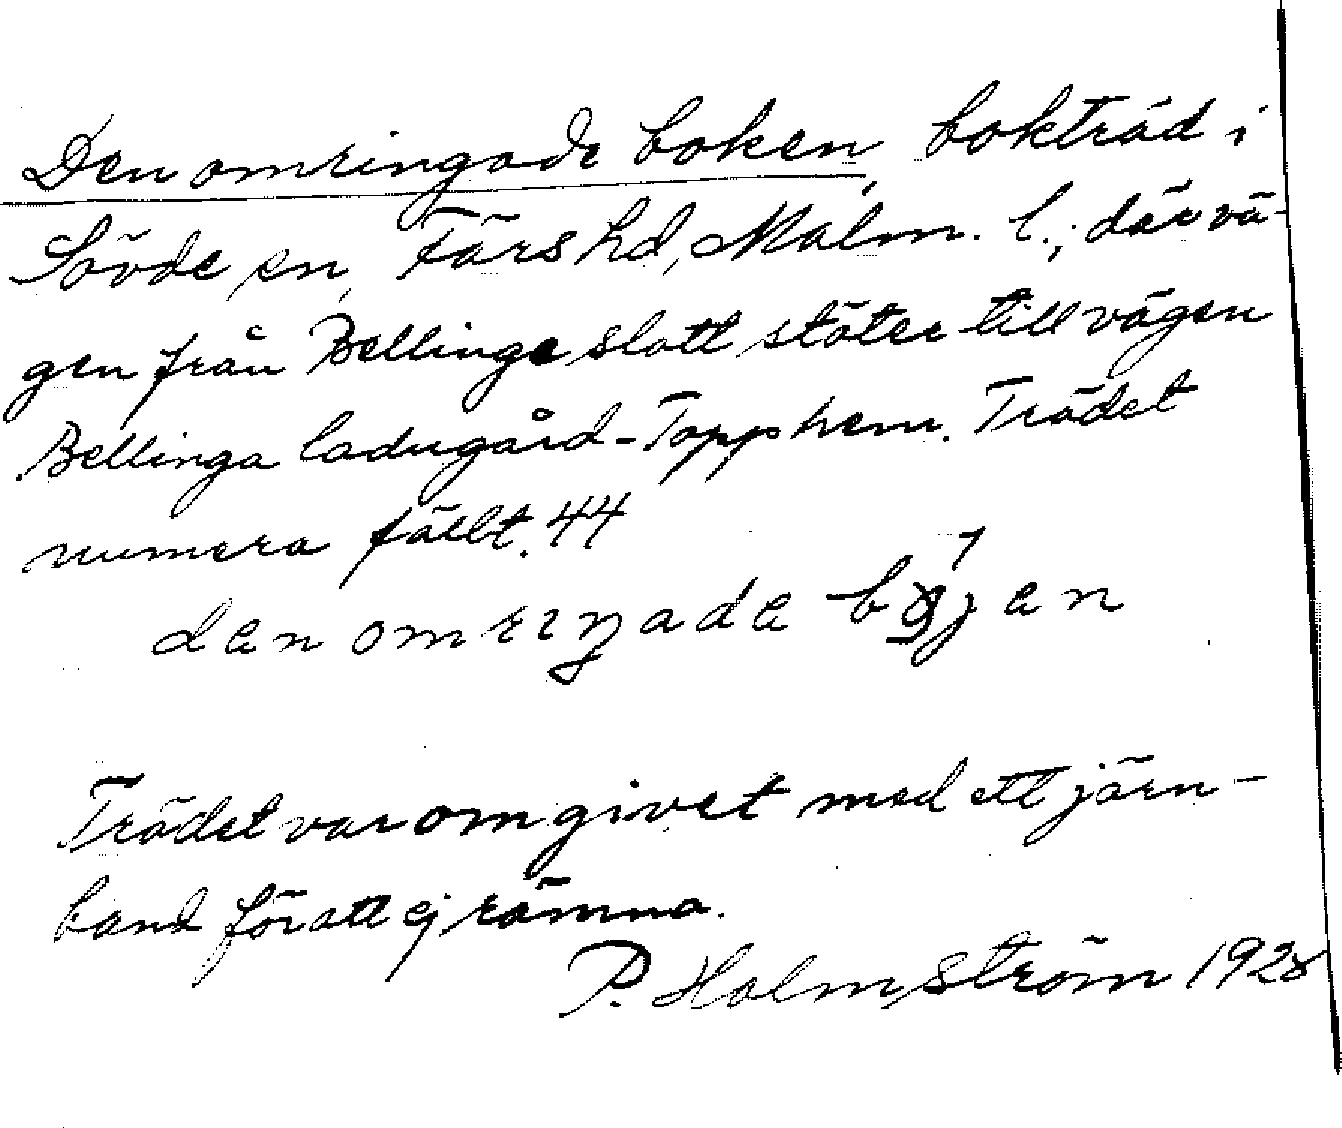 Den omringade boken, bokträd i
Sövde sn, Färs hd, Malm. l., där vä-
gen från Bellinge slott stöter till vägen
Bellinga ladugård-Topphem. Trädet
numera fällt. 44
den omriŋada
Trädet var omgivet med ett järn-
band för att ej rämna.
P. Holmström 1928